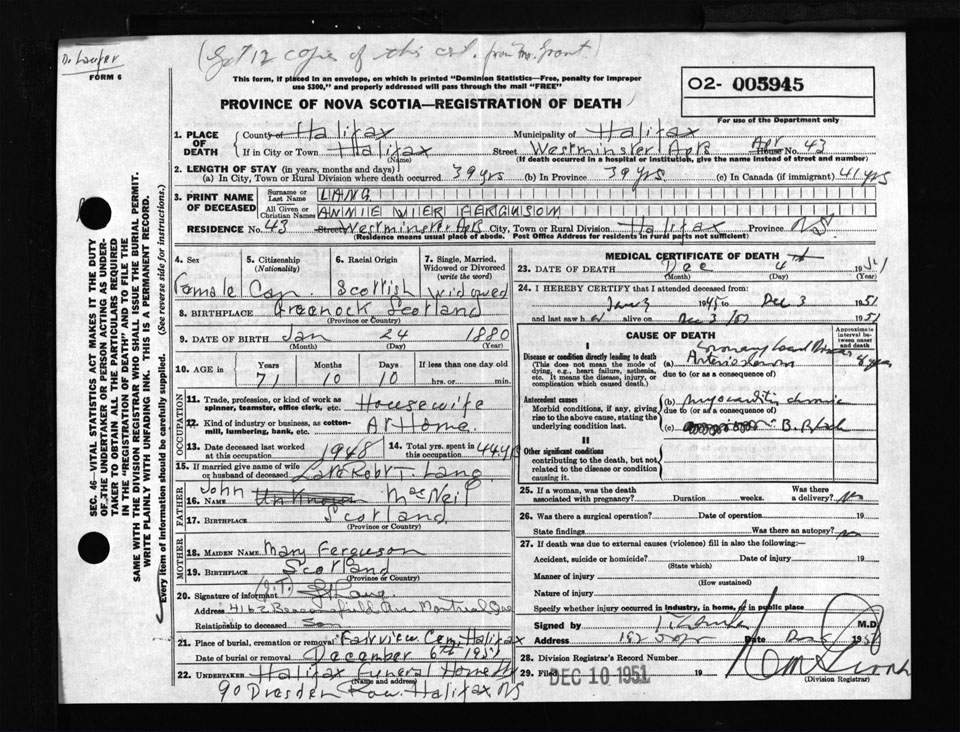 Dr Laufer
(Get 12 copies of this cert. from Mr. Grant)
FORM 6
This form, if placed in an envelope, on which is printed "Dominion Statistics—Free, penalty for improper
use $300," and properly addressed will pass through the mail "FREE"
PROVINCE OF NOVA SCOTIA—REGISTRATION OF DEATH
02- 005945
For use of the Department only
SEC. 46—VITAL STATISTICS ACT MAKES IT THE DUTY
OF THE UNDERTAKER OR PERSON ACTING AS UNDER-
TAKER TO OBTAIN ALL THE PARTICULARS REQUIRED
IN THE "REGISTRATION OF DEATH" AND TO FILE THE
SAME WITH THE DIVISION REGISTRAR WHO SHALL ISSUE THE BURIAL PERMIT.
WRITE PLAINLY WITH UNFADING INK. THIS IS A PERMANENT RECORD.
Every item of information should be carefully supplied. (See reverse side for instructions.)
1. PLACE OF DEATH
County of Halifax Municipality of Halifax
If in City or Town Halifax Street Westminster Apts Apt House No. 43
(Name) (If death occurred in a hospital or institution, give the name instead of street and number)
2. LENGTH OF STAY (in years, months and days)
(a) In City, Town or Rural Division where death occurred 39 yrs (b) In Province 39 yrs. (c) In Canada (if immigrant) 41 yrs
3. PRINT NAME OF DECEASED
Surname or Last Name LANG
All Given or Christian Names ANNIE NIER FERGUSON
RESIDENCE No. 43 Street Westminster Apts City, Town or Rural Division Halifax Province NS
(Residence means usual place of abode. Post Office Address for residents in rural parts not sufficient)
4. Sex 5. Citizenship (Nationality) 6. Racial Origin 7. Single, Married, Widowed or Divorced (write the word)
Female Can. Scottish Widowed
8. BIRTHPLACE Greenock Scotland
(Province or Country)
9. DATE OF BIRTH Jan 24 1880
(Month) (Day) (Year)
10. AGE in Years Months Days If less than one day
71 10 10 hrs. or min.
OCCUPATION
11. Trade, profession, or kind of work as spinner, teamster, office clerk, etc. Housewife
12. Kind of industry or business, as cotton-mill, lumbering, bank, etc. At Home
13. Date deceased last worked at this occupation 1948 14. Total yrs. spent in this occupation 44 yrs
15. If married give name of wife or husband of deceased Late Robt T. Lang
FATHER
16. NAME John Unknown MacNeil
17. BIRTHPLACE Scotland
(Province or Country)
MOTHER
18. MAIDEN NAME Mary Ferguson
19. BIRTHPLACE Scotland
(Province or Country)
20. Signature of informant Lang
Address 4162 Beaconsfield Ave Montreal Que
Relationship to deceased Son
21. Place of burial, cremation or removal Fairview Cem. Halifax
Date of burial or removal December 6th 1951
22. UNDERTAKER Halifax Funeral Home
(Name and address)
90 Dresden Row. Halifax NS
MEDICAL CERTIFICATE OF DEATH
23. DATE OF DEATH Dec 4th 1951
(Month) (Day) (Year)
24. I HEREBY CERTIFY that I attended deceased from:
Jan 3 1945 to Dec 3 1951
and last saw h er alive on Dec 3/51 1951
CAUSE OF DEATH
Approximate interval between onset and death
I
Disease or condition directly leading to death
(This does not mean the mode of dying, e.g., heart failure, asthenia, etc. It means the disease, injury, or complication which caused death.)
(a) Coronary
due to (or as a consequence of)
Antecedent causes
Morbid conditions, if any, giving rise to the above cause, stating the underlying condition last.
(b) myocarditis chronic
due to (or as a consequence of)
(c)
II
Other significant conditions
contributing to the death, but not related to the disease or condition causing it.
25. If a woman, was the death associated with pregnancy? Duration weeks. Was there a delivery? No
26. Was there a surgical operation? Date of operation 19
State findings Was there an autopsy? No
27. If death was due to external causes (violence) fill in also the following:—
Accident, suicide or homicide? Date of injury 19
(State which)
Manner of injury
(How sustained)
Nature of injury
Specify whether injury occurred in industry, in home, or in public place
Signed by M.D.
Address 182 Date Dec 1951
28. Division Registrar's Record Number
29. Filed DEC 10 1951 19
(Division Registrar)